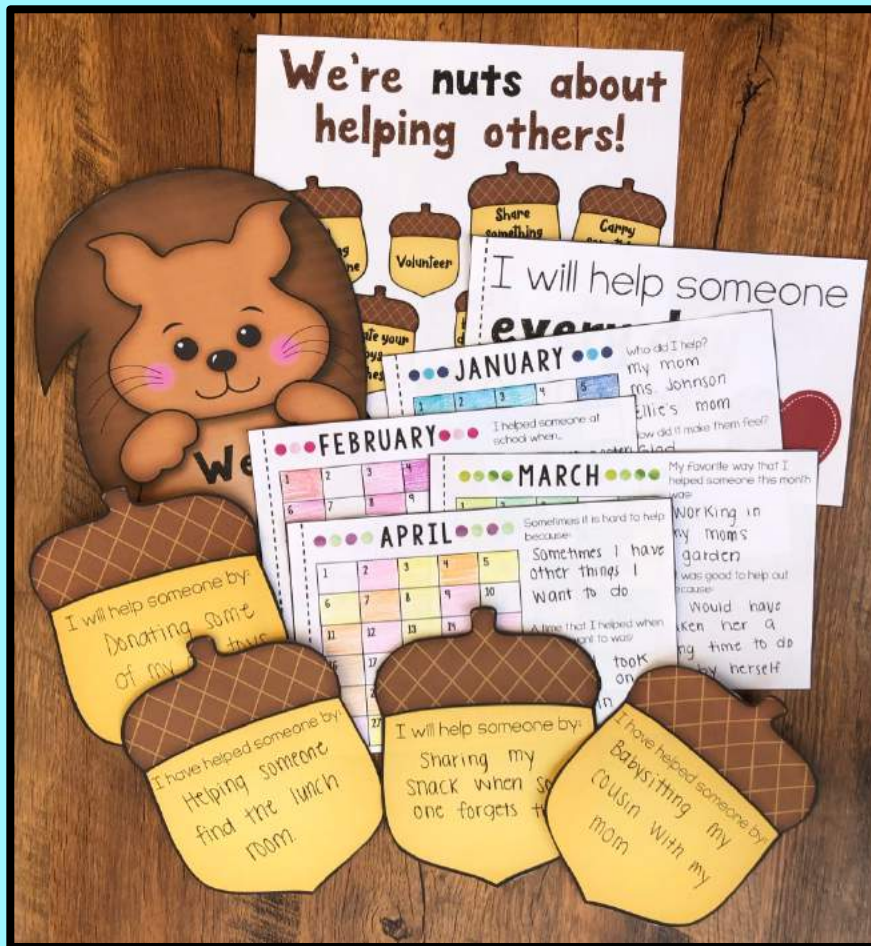 We're nuts about
helping others!
Share
something
Carry
Volunteer
ate your
I will help someone
JANUARY
1 2 3 4 5
who did I help?
my mom
ms. Johnson
Ellie's mom
How did it make them feel?
Glad
We
FEBRUARY
1 2 3 4
6 7 8 9
I helped someone at
school when...
MARCH
My favorite way that I
helped someone this month
was:
Working in
my moms
garden
was good to help out
because:
Would have
taken her a
time to do
by herself
APRIL
1 2 3 4 5
6 7 8 9 10
11 12 13 14
17
27
Sometimes it is hard to help
because:
Sometimes I have
other things I
want to do
A time that I helped when
want to was:
took
on
in
I will help someone by:
Donating some
of my toys
I have helped someone by:
Helping someone
find the lunch
room.
I will help someone by:
Sharing my
snack when
one forgets
I have helped someone by:
Babysitting my
cousin with my
mom